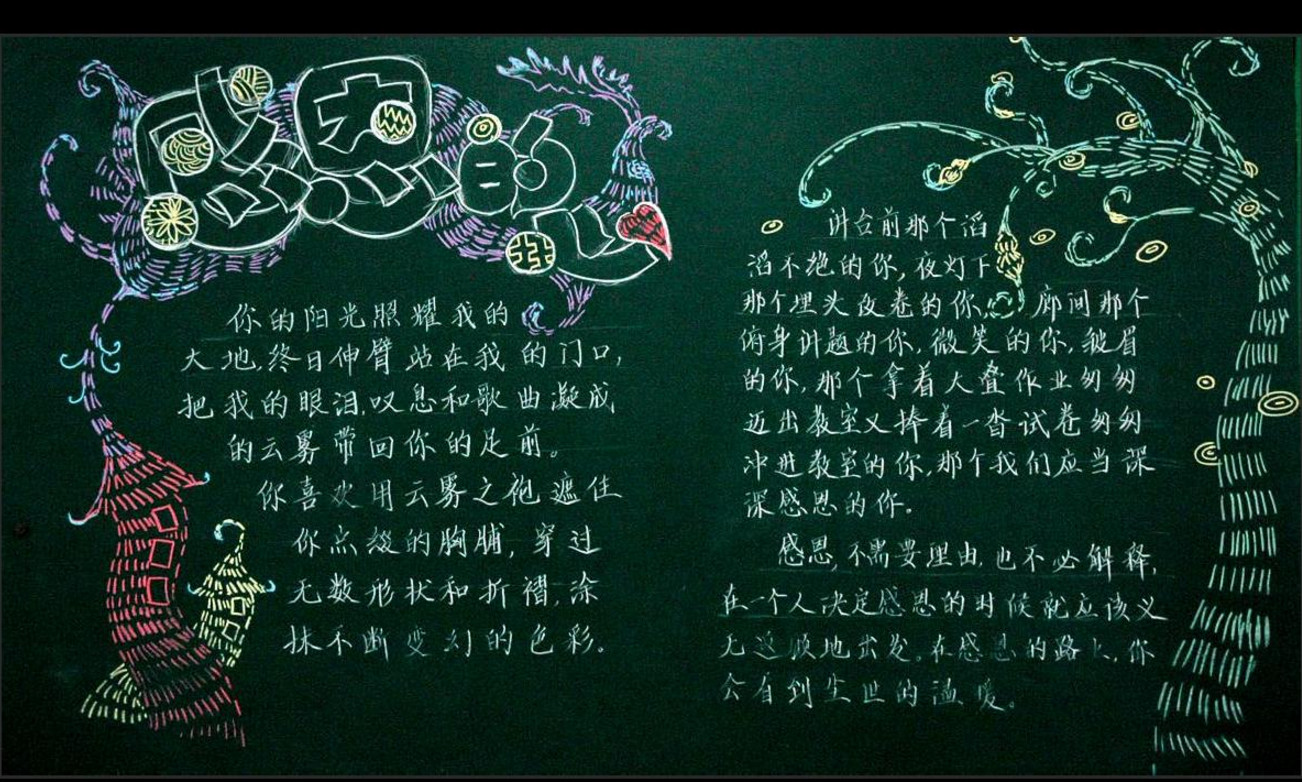 感恩的心
你的阳光照耀我的
大地,终日伸臂站在我的门口,
把我的眼泪,叹息和歌曲凝成
的云雾带回你的足前。
你喜欢用云雾之袍遮住
你点缀的胸脯,穿过
无数形状和折褶,涂
抹不断变幻的色彩。
讲台前那个滔
滔不绝的你,夜灯下
那个埋头改卷的你,廊间那个
俯身讲题的你,微笑的你,皱眉
的你,那个拿着大叠作业匆匆
迈出教室又捧着一沓试卷匆匆
冲进教室的你,那个我们应当深
深感恩的你。
感恩,不需要理由,也不必解释,
在一个人决定感恩的时候就应该义
无返顾地出发。在感恩的路上,你
会看到尘世的温暖。